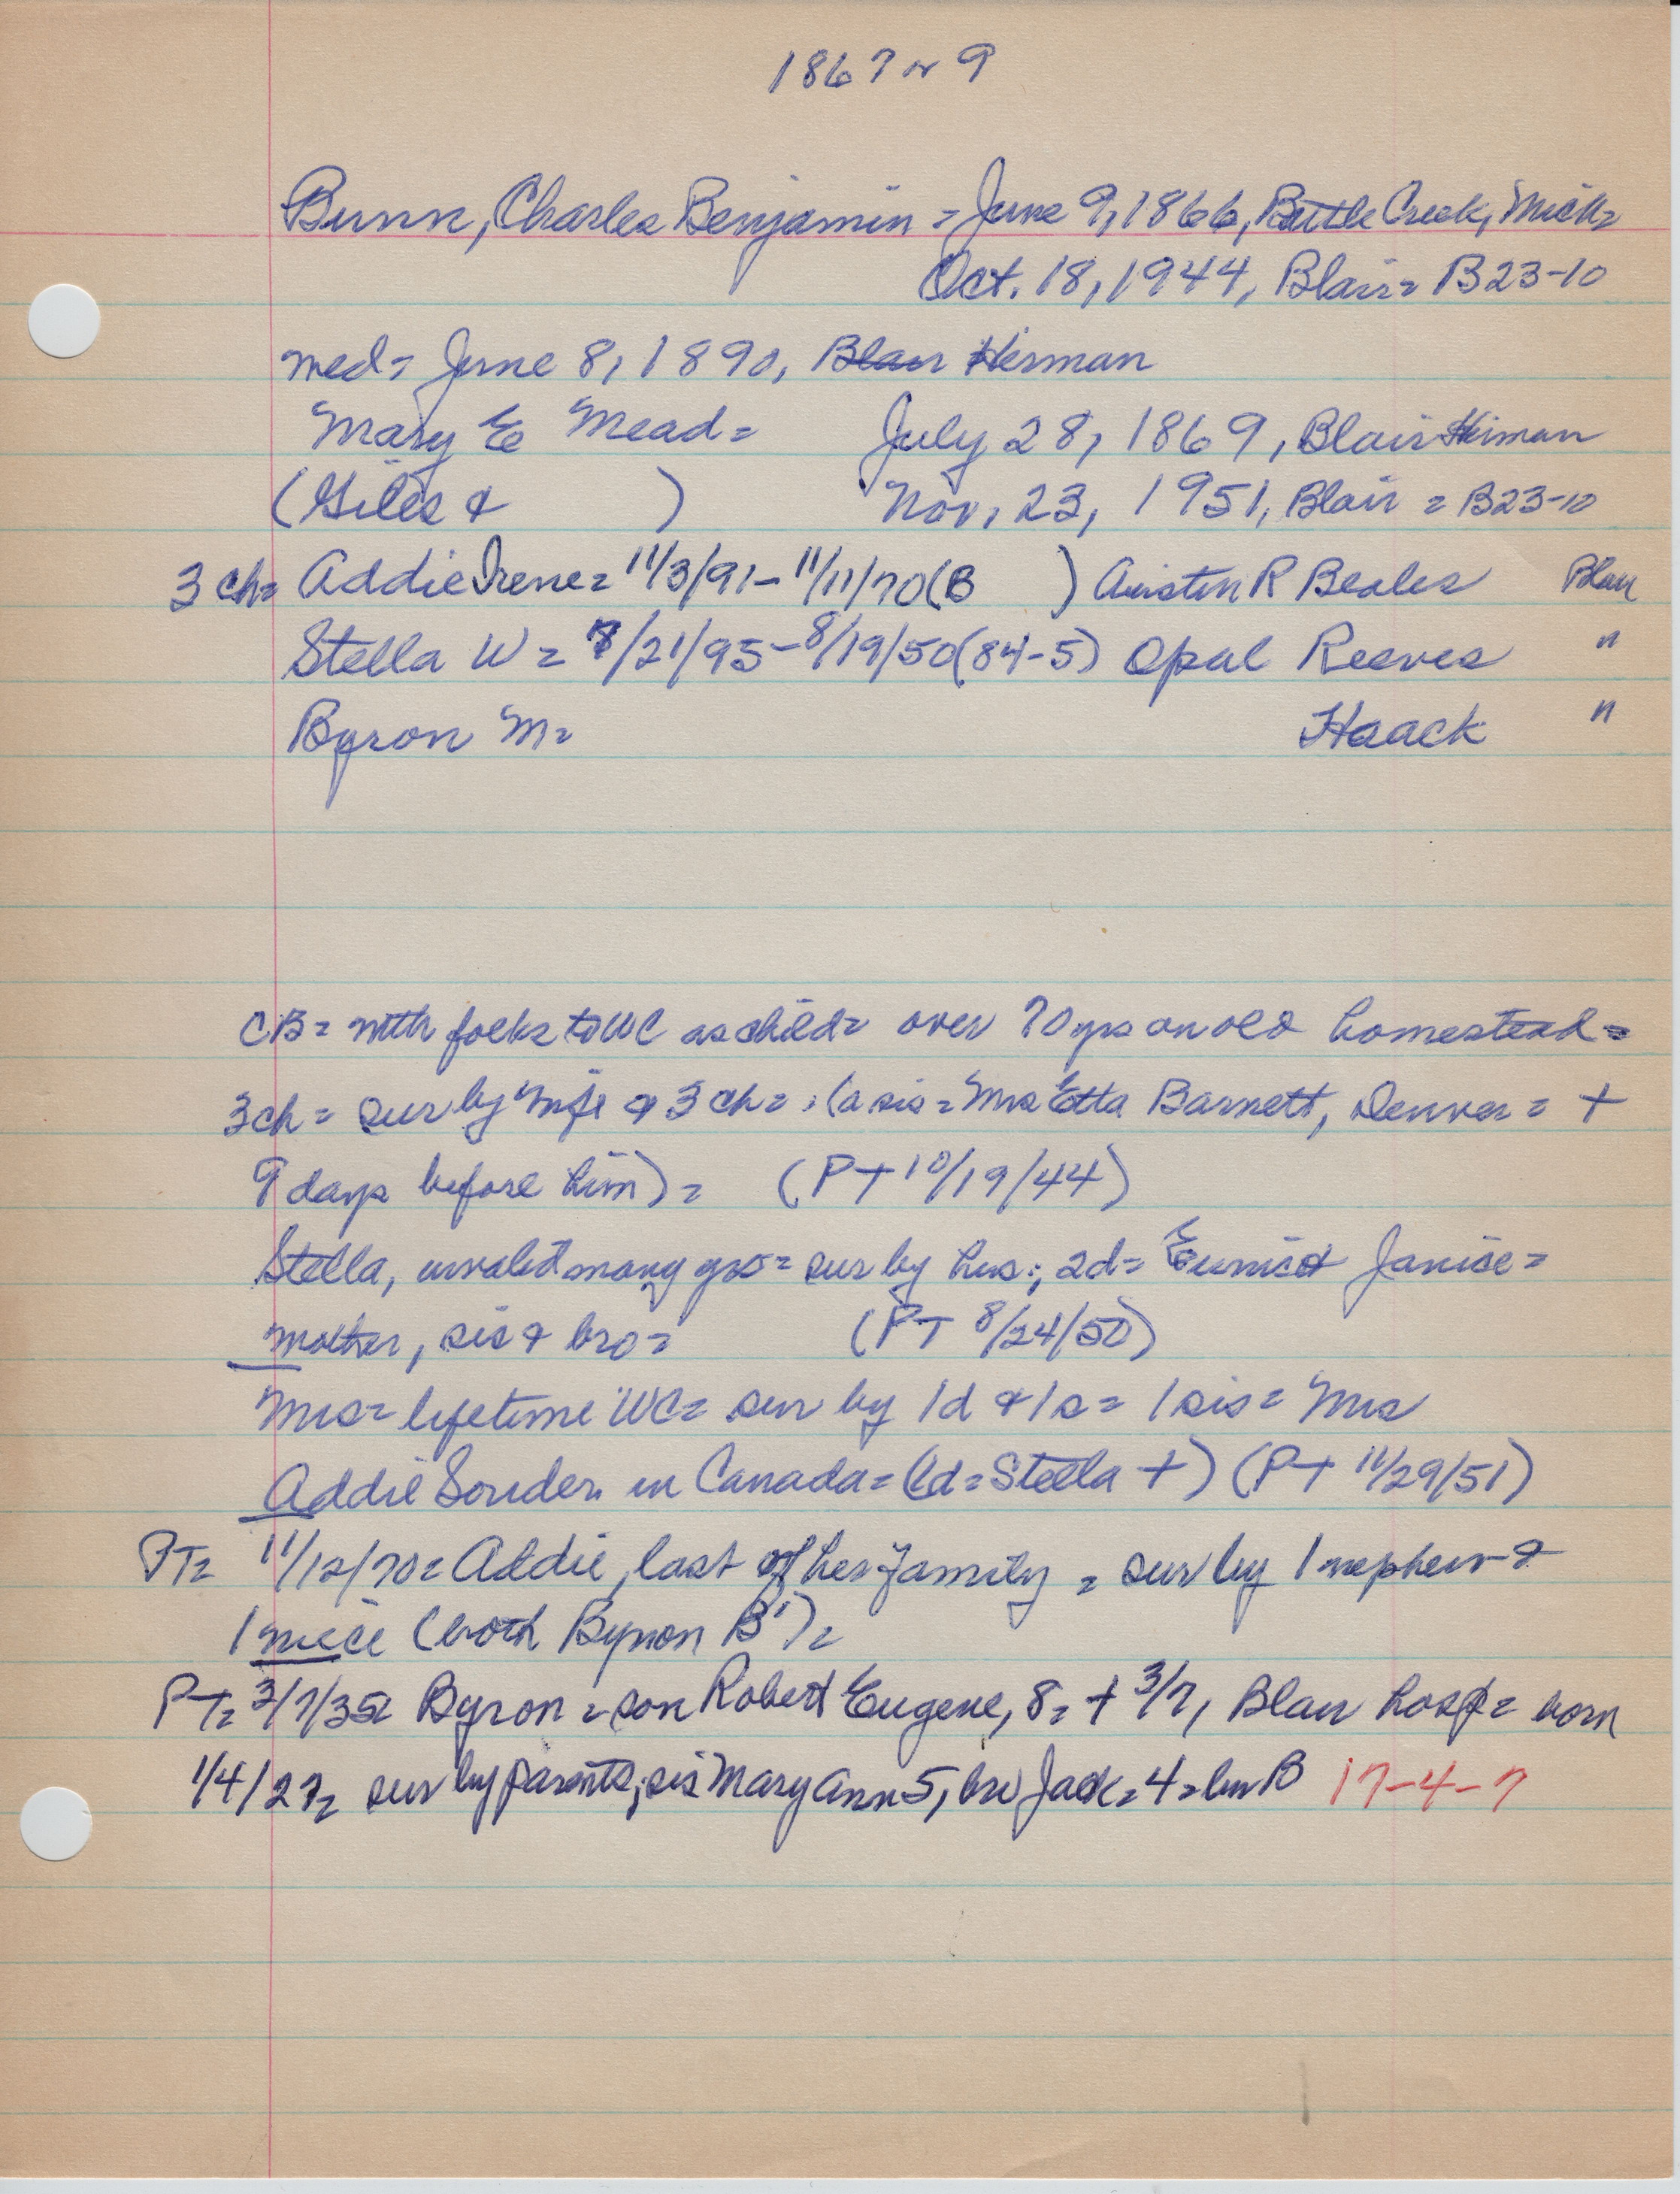 1867 or 9
Bunn, Charles Benjamin = June 9, 1866, Battle Creek, Mich=
Oct. 18, 1944, Blair= B23-10
med= June 8, 1890, Blair Herman
Mary E Mead= July 28, 1869, Blair Herman
(Giles & ) Nov. 23, 1951, Blair = B23-10
3 ch= Addie Irene= 11/3/91-11/11/70(B ) Austin R Beales Blair
Stella W= 8/21/95-8/19/50(84-5) Opal Reeves "
Byron M= Haack "
CB= with folks to WC as child= over 70 yrs on old homestead=
3ch= sur by wife & 3 ch= (a sis= Mrs Etta Barnett, Denver= +
9 days before him)= (PT 10/19/44)
Stella, invalid many yrs= sur by hus; 2d= Eunice & Janice=
mother, sis & bro= (PT 8/24/50)
Mrs= lifetime WC= sur by 1d & 1s= 1 sis= Mrs
Addie Souder in Canada= (d=Stella +) (PT 11/29/51)
PT= 11/12/70= Addie, last of her family = sur by 1 nephew &
1 niece (both Byron B')=
PT= 3/7/35= Byron = son Robert Eugene, 8= + 3/7, Blair hosp= born
1/4/27= sur by parents; sis Mary Ann 5, bro Jack= 4= bur B 17-4-7